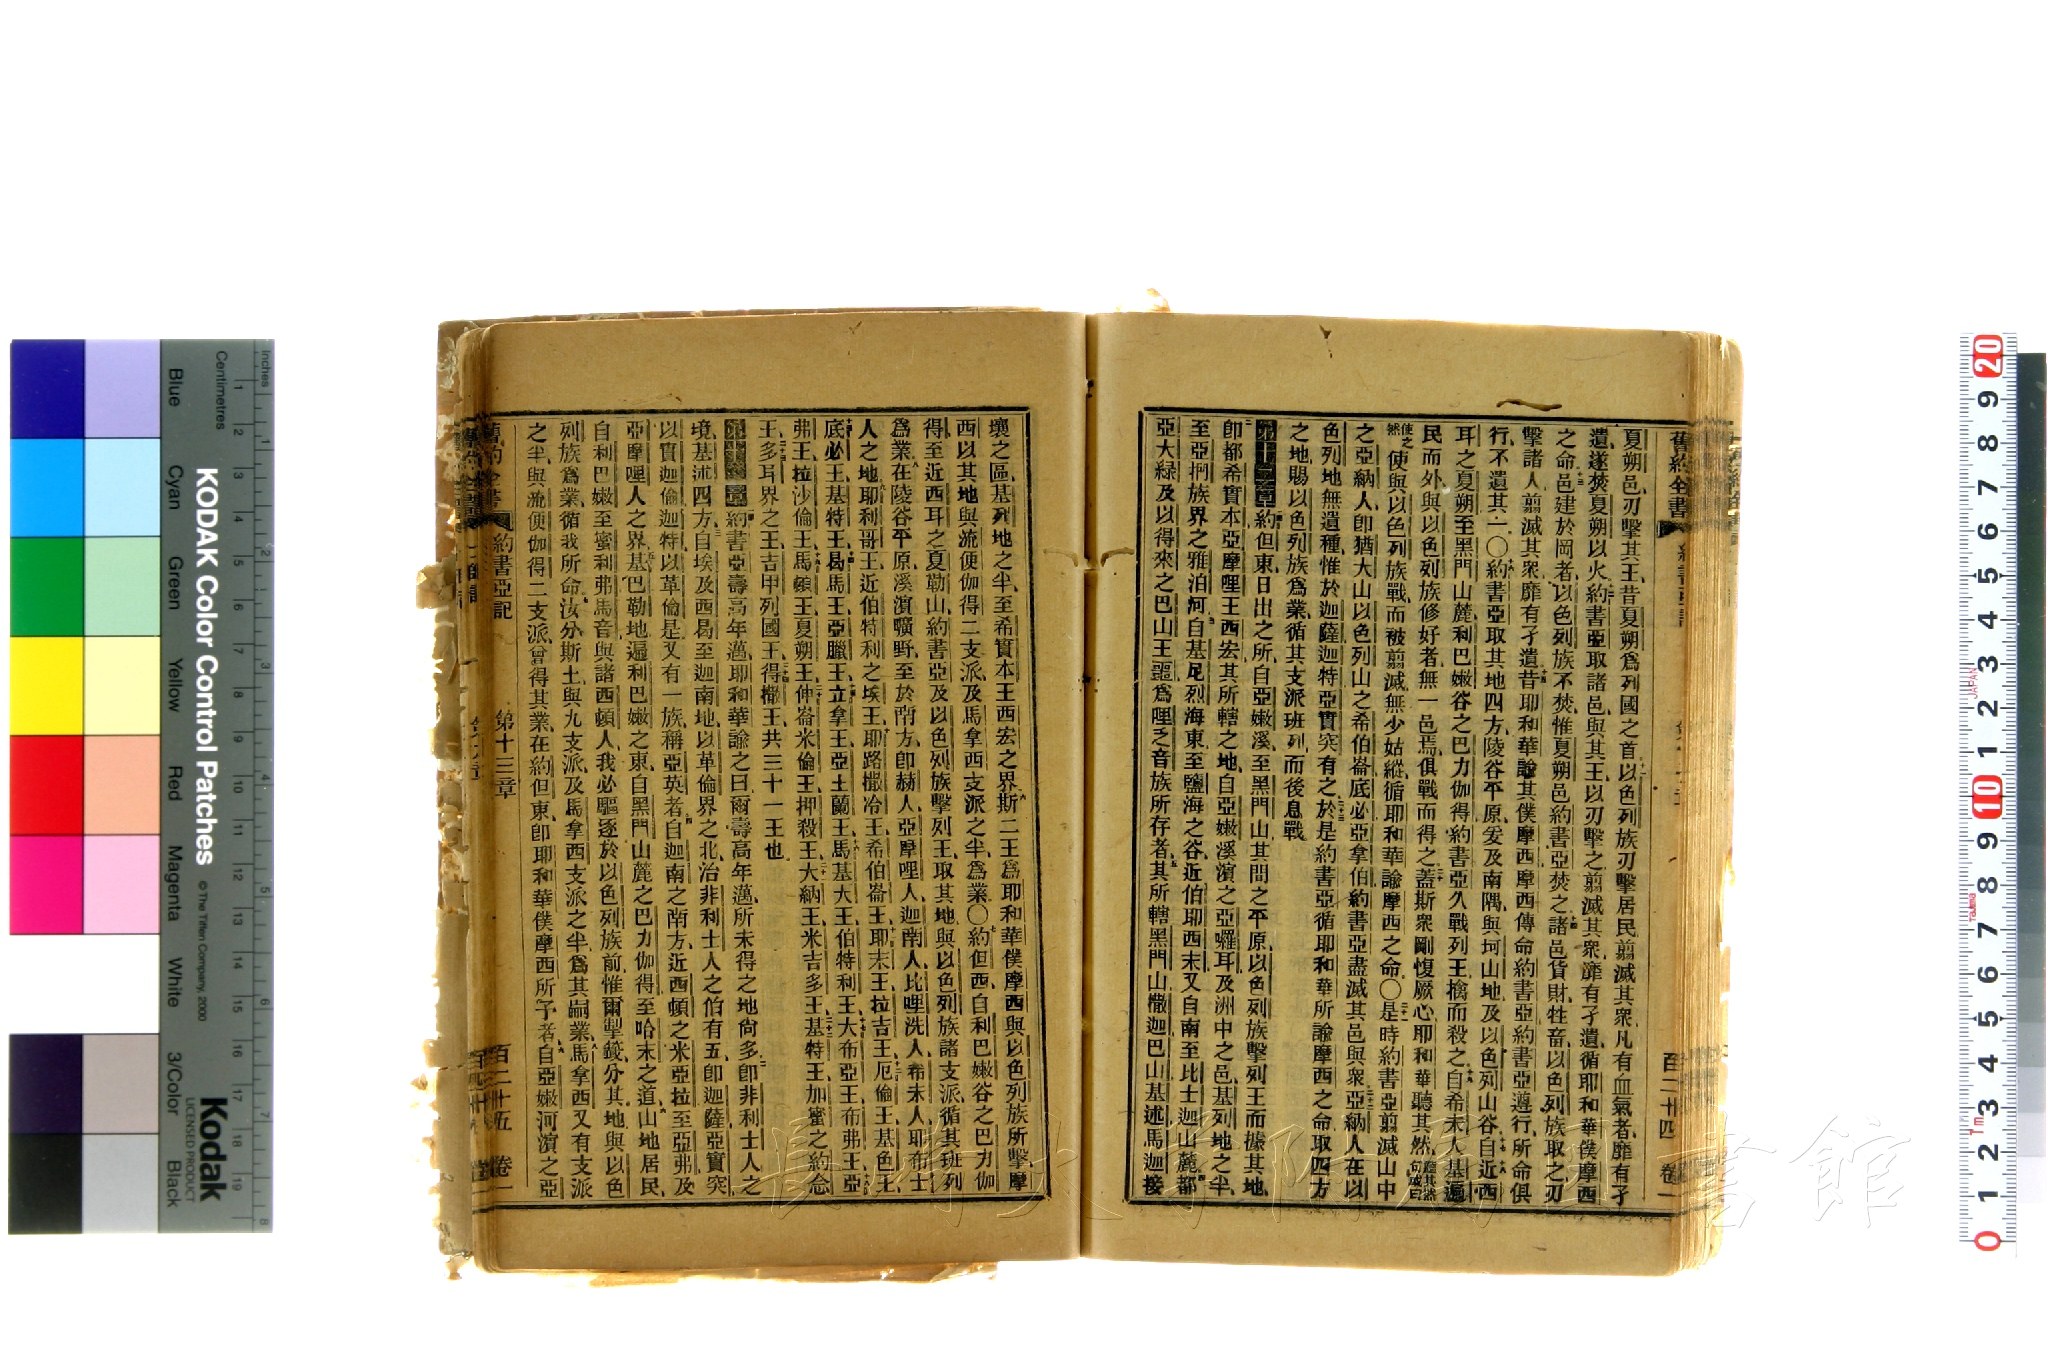 舊約全書
百二十四
卷一
夏朔邑刃擊其王昔夏朔爲列國之首以色列族刃擊居民翦滅其衆凡有血氣者靡有孑
遺遂焚夏朔以火約書亞取諸邑與其王以刃擊之翦滅其衆靡有孑遺循耶和華僕摩西
之命邑建於岡者以色列族不焚惟夏朔邑約書亞焚之諸邑貨財牲畜以色列族取之刃
擊諸人翦滅其衆靡有孑遺昔耶和華諭其僕摩西摩西傳命約書亞約書亞遵行所命俱
行不遺其一〇約書亞取其地四方陵谷平原爰及南隅與坷山地及以色列山谷自近西
耳之夏朔至黑門山麓利巴嫩谷之巴力伽得約書亞久戰列王擒而殺之自希未人基遍
民而外與以色列族修好者無一邑焉俱戰而得之蓋斯衆剛愎厥心耶和華聽其然
使之然使與以色列族戰而被翦滅無少姑縱循耶和華諭摩西之命〇是時約書亞翦滅山中
之亞納人卽猶大山以色列山之希伯崙底必亞拿伯約書亞盡滅其邑與衆亞納人在以
色列地無遺種惟於迦薩迦特亞實突有之於是約書亞循耶和華所諭摩西之命取四方
之地賜以色列族爲業循其支派班列而後息戰
第十二章約但東日出之所自亞嫩溪至黑門山其間之平原以色列族擊列王而據其地
卽都希實本亞摩哩王西宏其所轄之地自亞嫩溪濱之亞囉耳及洲中之邑基列地之半
至亞捫族界之雅泊河自基尼烈海東至鹽海之谷近伯耶西末又自南至比士迦山麓都
亞大綠及以得來之巴山王噩爲哩乏音族所存者其所轄黑門山撒迦巴山基述馬迦接
壤之區基列地之半至希實本王西宏之界斯二王爲耶和華僕摩西與以色列族所擊摩
西以其地與流便伽得二支派及馬拿西支派之半爲業〇約但西自利巴嫩谷之巴力伽
得至近西耳之夏勒山約書亞及以色列族擊列王取其地與以色列族諸支派循其班列
爲業在陵谷平原溪濱曠野至於南方卽赫人亞摩哩人迦南人比哩洗人希未人耶布士
人之地耶利哥王近伯特利之埃王耶路撒冷王希伯崙王耶末王拉吉王厄倫王基色王
底必王基特王曷馬王亞臘王立拿王亞土蘭王馬基大王伯特利王大布亞王布弗王亞
弗王拉沙倫王馬頓王夏朔王伸崙米倫王押殺王大納王米吉多王基特王加蜜之約念
王多耳界之王吉甲列國王得撒王共三十一王也
第十三章約書亞壽高年邁耶和華諭之曰爾壽高年邁所未得之地尙多卽非利士人之
境基述四方自埃及西曷至迦南地以革倫界之北治非利士人之伯有五卽迦薩亞實突
以實迦倫迦特以革倫是又有一族稱亞英者自迦南之南方近西頓之米亞拉至亞弗及
亞摩哩人之界基巴勒地遍利巴嫩之東自黑門山麓之巴力伽得至哈末之道山地居民
自利巴嫩至蜜利弗馬音與諸西頓人我必驅逐於以色列族前惟爾掣籤分其地與以色
列族爲業循我所命汝分斯土與九支派及馬拿西支派之半爲其嗣業馬拿西又有支派
之半與流便伽得二支派曾得其業在約但東卽耶和華僕摩西所予者自亞嫩河濱之亞
舊約全書
約書亞記
第十三章
百二十五
卷一
KODAK Color Control Patches
© The Tiffen Company, 2000
Kodak
LICENSED PRODUCT
Inches
Centimetres
Blue
Cyan
Green
Yellow
Red
Magenta
White
3/Color
Black
JAPAN
長崎大学附属図書館